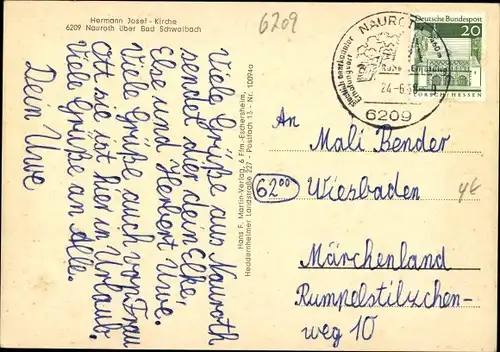 Hermann Josef-Kirche
6209 Nauroth über Bad Schwalbach
6209
Viele Grüße aus Nauroth
sendet dir dein Elke,
Else und Herbert Uwe.
Viele Grüße auch von Frau
Ott sie ist hier in Urlaub.
Viele Grüße an Alle.
Dein Uwe
Hans F. Martin-Verlag, 6 Ffm.-Eschersheim,
Heddernheimer Landstraße 227 - Postfach 13 - Nr. 10094a
NAUROTH
24-6.68
6209
Deutsche Bundespost
20
LORSCH/HESSEN
An
Mali Bender
6200
Wiesbaden
Märchenland
Rumpelstilzchen-
weg 10